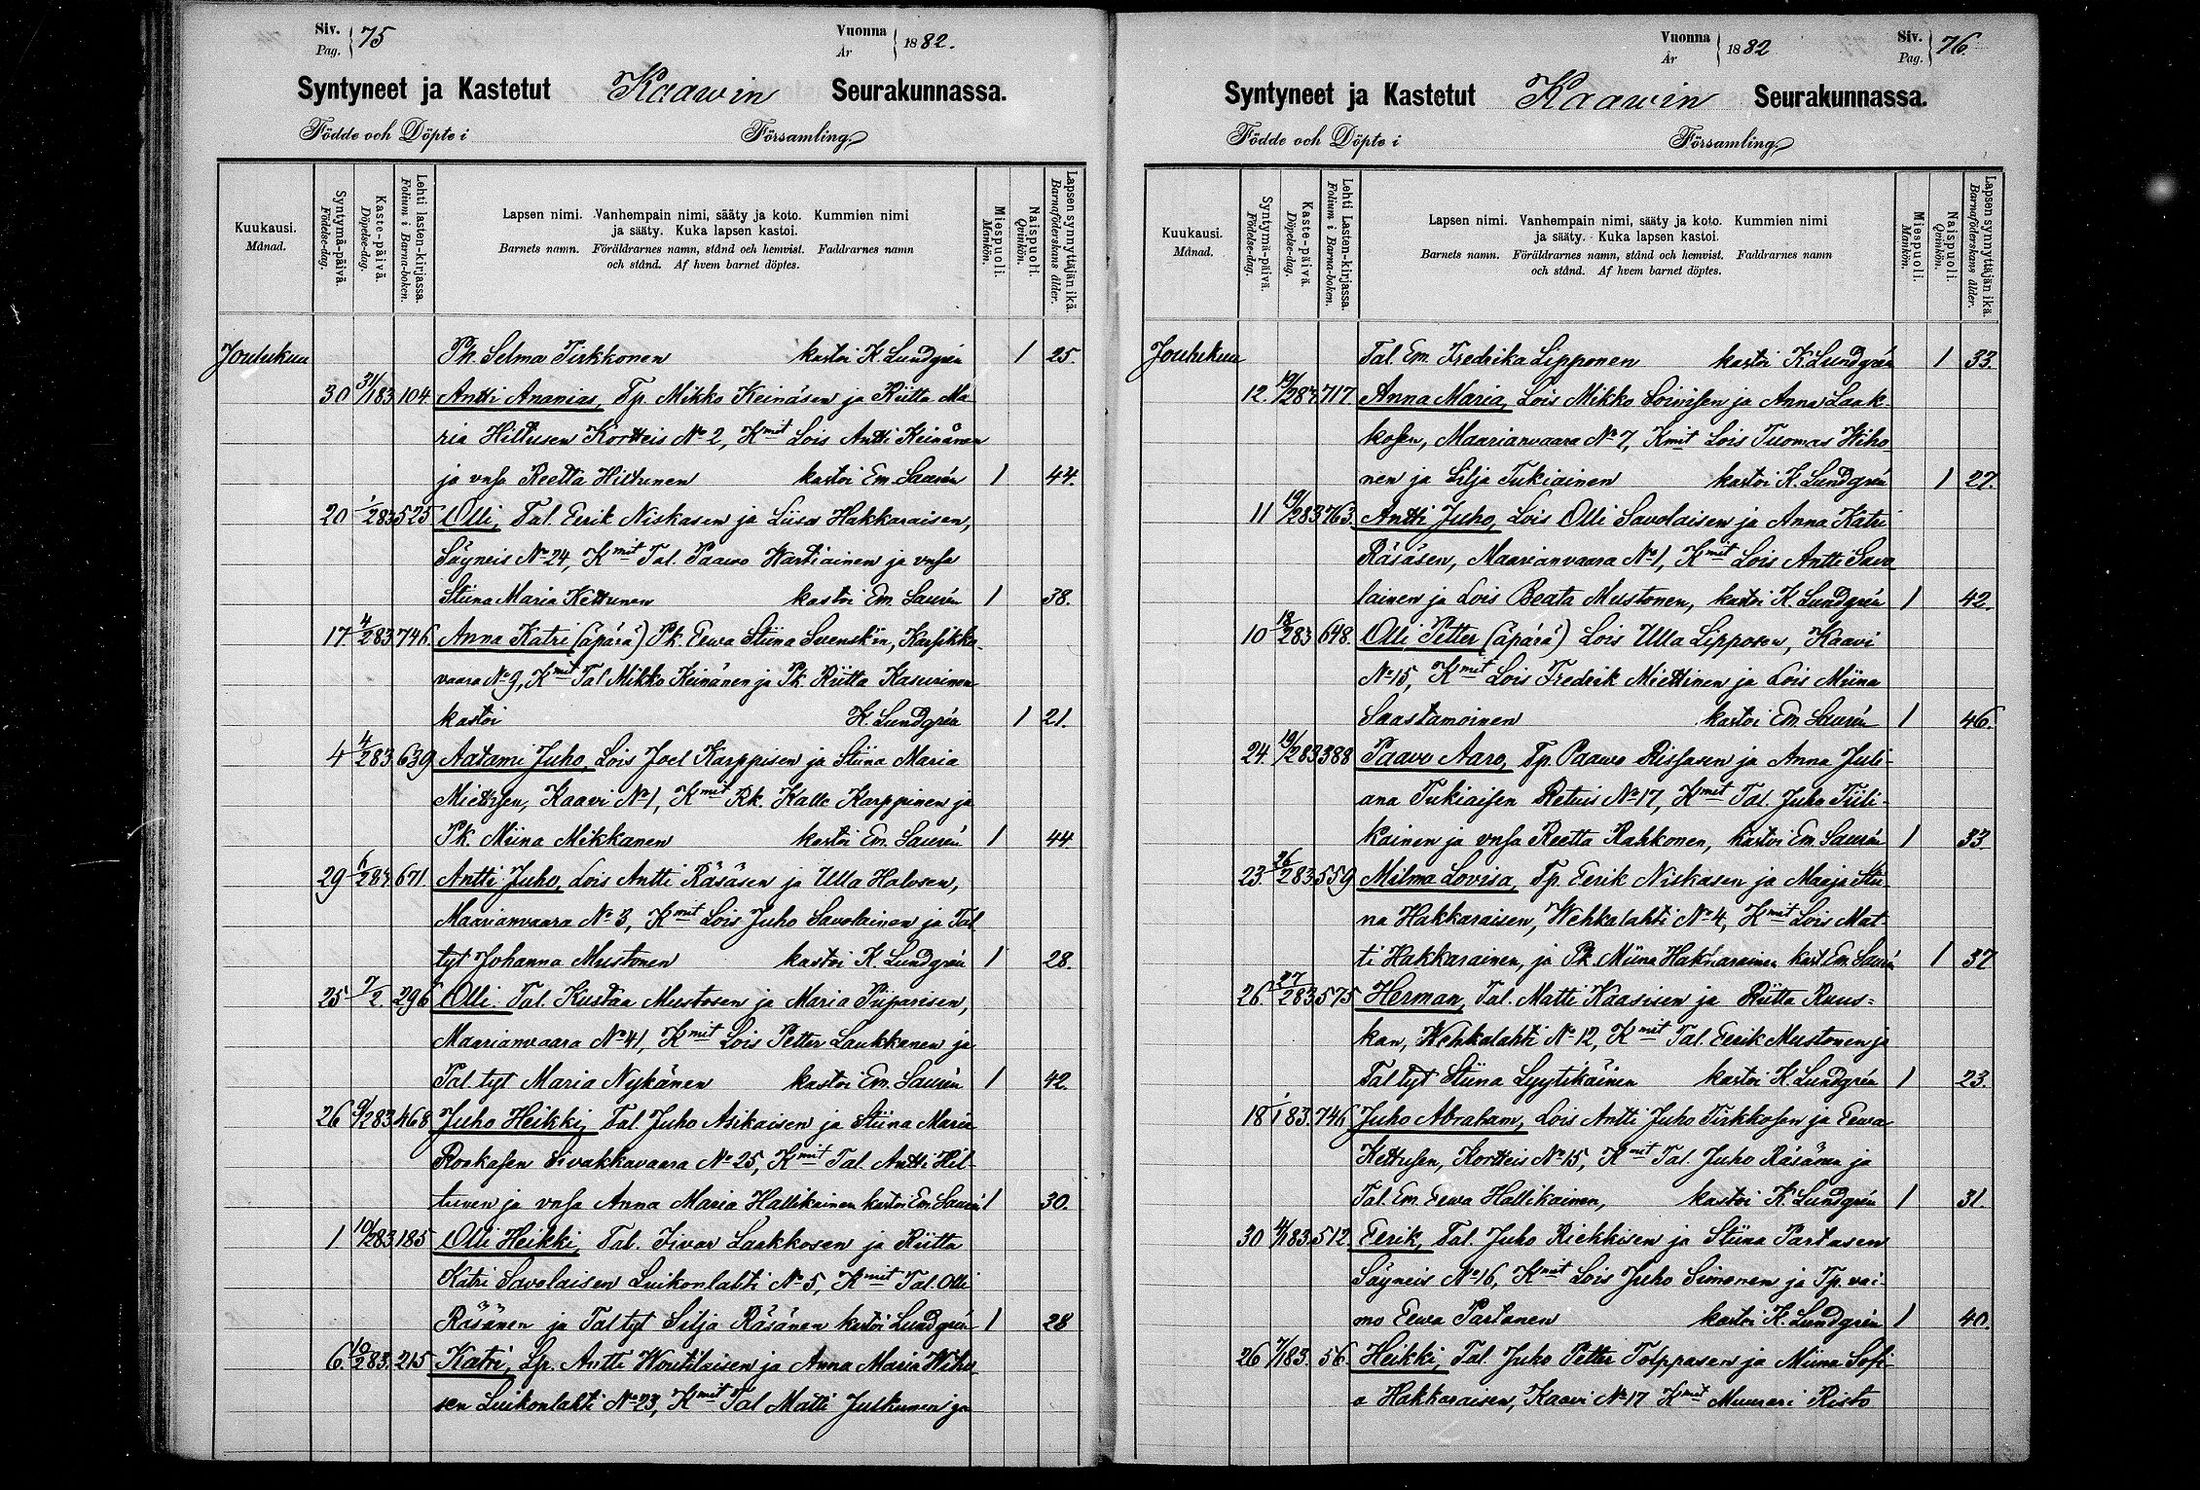 Siv. Pag. 75 Vuonna År 1882.
Syntyneet ja Kastetut Kaawin Seurakunnassa.
Födde och Döpte i Församling
Kuukausi. Månad.
Syntymä-päivä. Födelse-dag.
Kaste-päivä. Döpelse-dag.
Lehti lasten-kirjassa. Folium i Barna-boken.
Lapsen nimi. Vanhempain nimi, sääty ja koto. Kummien nimi
ja sääty. Kuka lapsen kastoi.
Barnets namn. Föräldrarnes namn, stånd och hemvist. Faddrarnes namn
och stånd. Af hvem barnet döptes.
Miespuoli. Mankön.
Naispuoli. Qvinkön.
Lapsen synnyttäjän ikä. Barnaföderskans ålder.
Joulukuu Ph. Selma Tirkkonen kastoi K. Lundgrén 1 25.
30 31/1 83 104 Antti Ananias, Tp. Mikko Keinäsen ja Riitta Ma
ria Hiltusen Kortteis No 2, Kmit Lois Antti Keinänen
ja vnsa Reetta Hiltunen kastoi Em. Saurén 1 44.
20 1/2 83 525 Olli, Tal. Eerik Niskasen ja Liisa Hakkaraisen,
Säyneis No 24, Kmit Tal. Paavo Wartiainen ja vnsa
Stiina Maria Kettunen kastoi Em. Saurén 1 38.
17. 4/2 83 746. Anna Katri (äpärä) Pk. Eewa Stiina Svensk'in, Karsikko-
vaara No 9, Kmit Tal Mikko Keinänen ja Pk. Riitta Kasurinen
kastoi K. Lundgrén 1 21.
4 4/2 83 639 Aatami Juho, Lois Joel Karppisen ja Stiina Maria
Miettisen, Kaavi No 1, Kmit Rk. Kalle Karppinen ja
Pk. Miina Mikkanen kastoi Em. Saurén 1 44
29 6/2 83 671 Antti Juho, Lois Antti Räsäsen ja Ulla Halosen,
Maarianvaara No 3, Kmit Lois Juho Savolainen ja Tal.
tyt Johanna Mustonen kastoi K. Lundgrén 1 28.
25 7/2. 296 Olli. Tal. Kustaa Mustosen ja Maria Piiparisen,
Maarianvaara No 41, Kmit Lois Petter Laukkanen ja
Tal. tyt Maria Nykänen kastoi Em. Saurén 1 42.
26 9/2 83 468 Juho Heikki, Tal. Juho Asikaisen ja Stiina Maria
Roskasen Sivakkavaara No 25, Kmit Tal. Antti Hil-
tunen ja vnsa Anna Maria Hallikainen kastoi Em. Saurén 1 30.
1. 10/2 83 185 Olli Heikki, Tal. Iivar Laakkosen ja Riitta
Katri Savolaisen Luikonlahti No 5, Kmit Tal. Olli
Räsänen ja Tal tyt Silja Räsänen kastoi Lundgrén 1 28
6. 10/2 83. 215 Katri, Lp. Antti Woutilaisen ja Anna Maria Wiho
sen Luikonlahti No 23, Kmit Tal Matti Julkunen ja
Vuonna År 1882 Siv. Pag. 76.
Syntyneet ja Kastetut Kaawin Seurakunnassa.
Födde och Döpte i Församling
Kuukausi. Månad.
Syntymä-päivä. Födelse-dag.
Kaste-päivä. Döpelse-dag.
Lehti Lasten-kirjassa. Folium i Barna-boken.
Lapsen nimi. Vanhempain nimi, sääty ja koto. Kummien nimi
ja sääty. Kuka lapsen kastoi.
Barnets namn. Föräldrarnes namn, stånd och hemvist. Faddrarnes namn
och stånd. Af hvem barnet döptes.
Miespuoli. Mankön.
Naispuoli. Qvinkön.
Lapsen synnyttäjän ikä. Barnaföderskans ålder.
Joulukuu Tal. Em. Fredrika Lipponen kastoi K. Lundgrén 1 33.
12. 717. Anna Maria, Lois Mikko Soinisen ja Anna Laak-
kosen, Maarianvaara No 7, Kmit Lois Tuomas Wiho
nen ja Silja Tukiainen kastoi K. Lundgrén 1 27.
11 763. Antti Juho, Lois Olli Savolaisen ja Anna Katri
Räsäsen, Maarianvaara No 1, Kmit Lois Antti Savo
lainen ja Lois Beata Mustonen, kastoi K. Lundgrén 1 42.
10 18/2 83 648. Olli Petter (äpärä) Lois Ulla Lipposen, Kaavi
No 15, Kmit Lois Fredrik Miettinen ja Lois Miina
Saastamoinen kastoi Em. Saurén 1 46.
24. 19/2 83 388 Paavo Aaro, Tp. Paawo Rissasen ja Anna Juli-
ana Tukiaisen Retuis No 17, Kmit Tal. Juho Tiili-
kainen ja vnsa Reetta Rahkonen, kastoi Em. Saurén 1 33
23. 26/2 83 559 Milma Lovisa, Tp. Eerik Niskasen ja Maaja Stii-
na Hakkaraisen, Wehkalahti No 4, Kmit Lois Mat-
ti Hakkarainen, ja Pk. Miina Hakkarainen kast Em. Saurén 1 37
26. 27/2 83 575 Herman, Tal. Matti Kaasisen ja Riitta Ruus-
kan, Wehkalahti No 12, Kmit Tal. Eerik Mustonen ja
Tal tyt Stiina Lyytikäinen kastoi K. Lundgrén 1 23.
18 83. 746 Juho Abraham, Lois Antti Juho Tirkkosen ja Eewa
Kettusen, Kortteis No 15, Kmit Tal. Juho Räsänen ja
Tal. Em. Eewa Hallikainen, kastoi K. Lundgrén 1 31.
30 83. 512. Eerik, Tal. Juho Riekkisen ja Stiina Partasen
Säyneis No 16, Kmit Lois Juho Simonen ja Tp. vai-
mo Eewa Partanen kastoi K. Lundgrén 1 40.
26 7/1 83. 56. Heikki, Tal. Juho Petter Tolppasen ja Miina Sofi-
a Hakkaraisen, Kaavi No 17 Kmit Muurari Risto